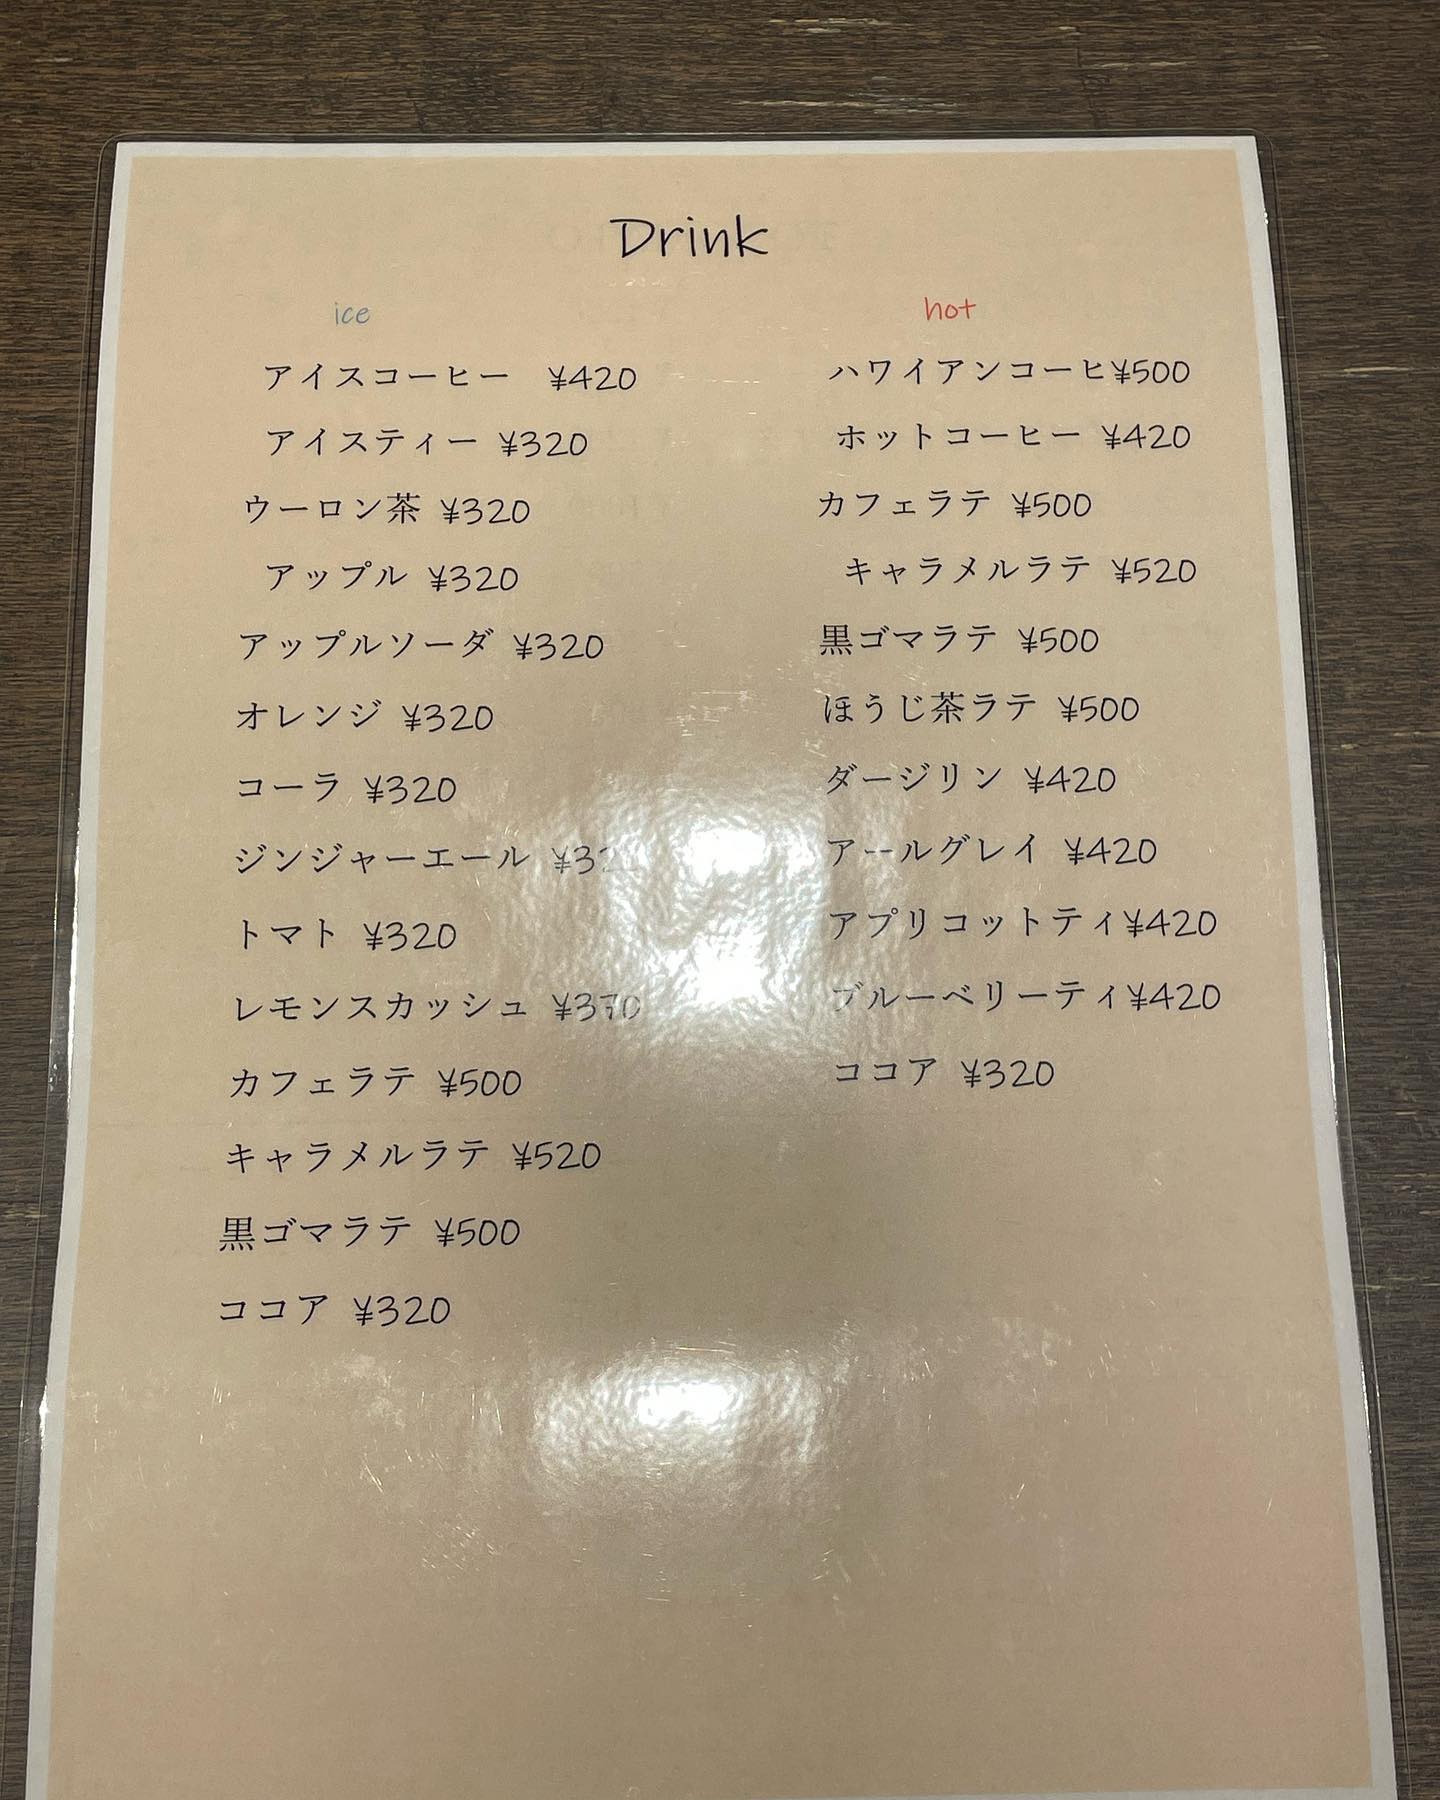 Drink
ice
アイスコーヒー ¥420
アイスティー ¥320
ウーロン茶 ¥320
アップル ¥320
アップルソーダ ¥320
オレンジ ¥320
コーラ ¥320
ジンジャーエール
トマト ¥320
レモンスカッシュ ¥370
カフェラテ ¥500
キャラメルラテ ¥520
黒ゴマラテ ¥500
ココア ¥320
hot
ハワイアンコーヒ¥500
ホットコーヒー ¥420
カフェラテ ¥500
キャラメルラテ ¥520
黒ゴマラテ ¥500
ほうじ茶ラテ ¥500
ダージリン ¥420
アールグレイ ¥420
アプリコットティ¥420
ブルーベリーティ¥420
ココア ¥320